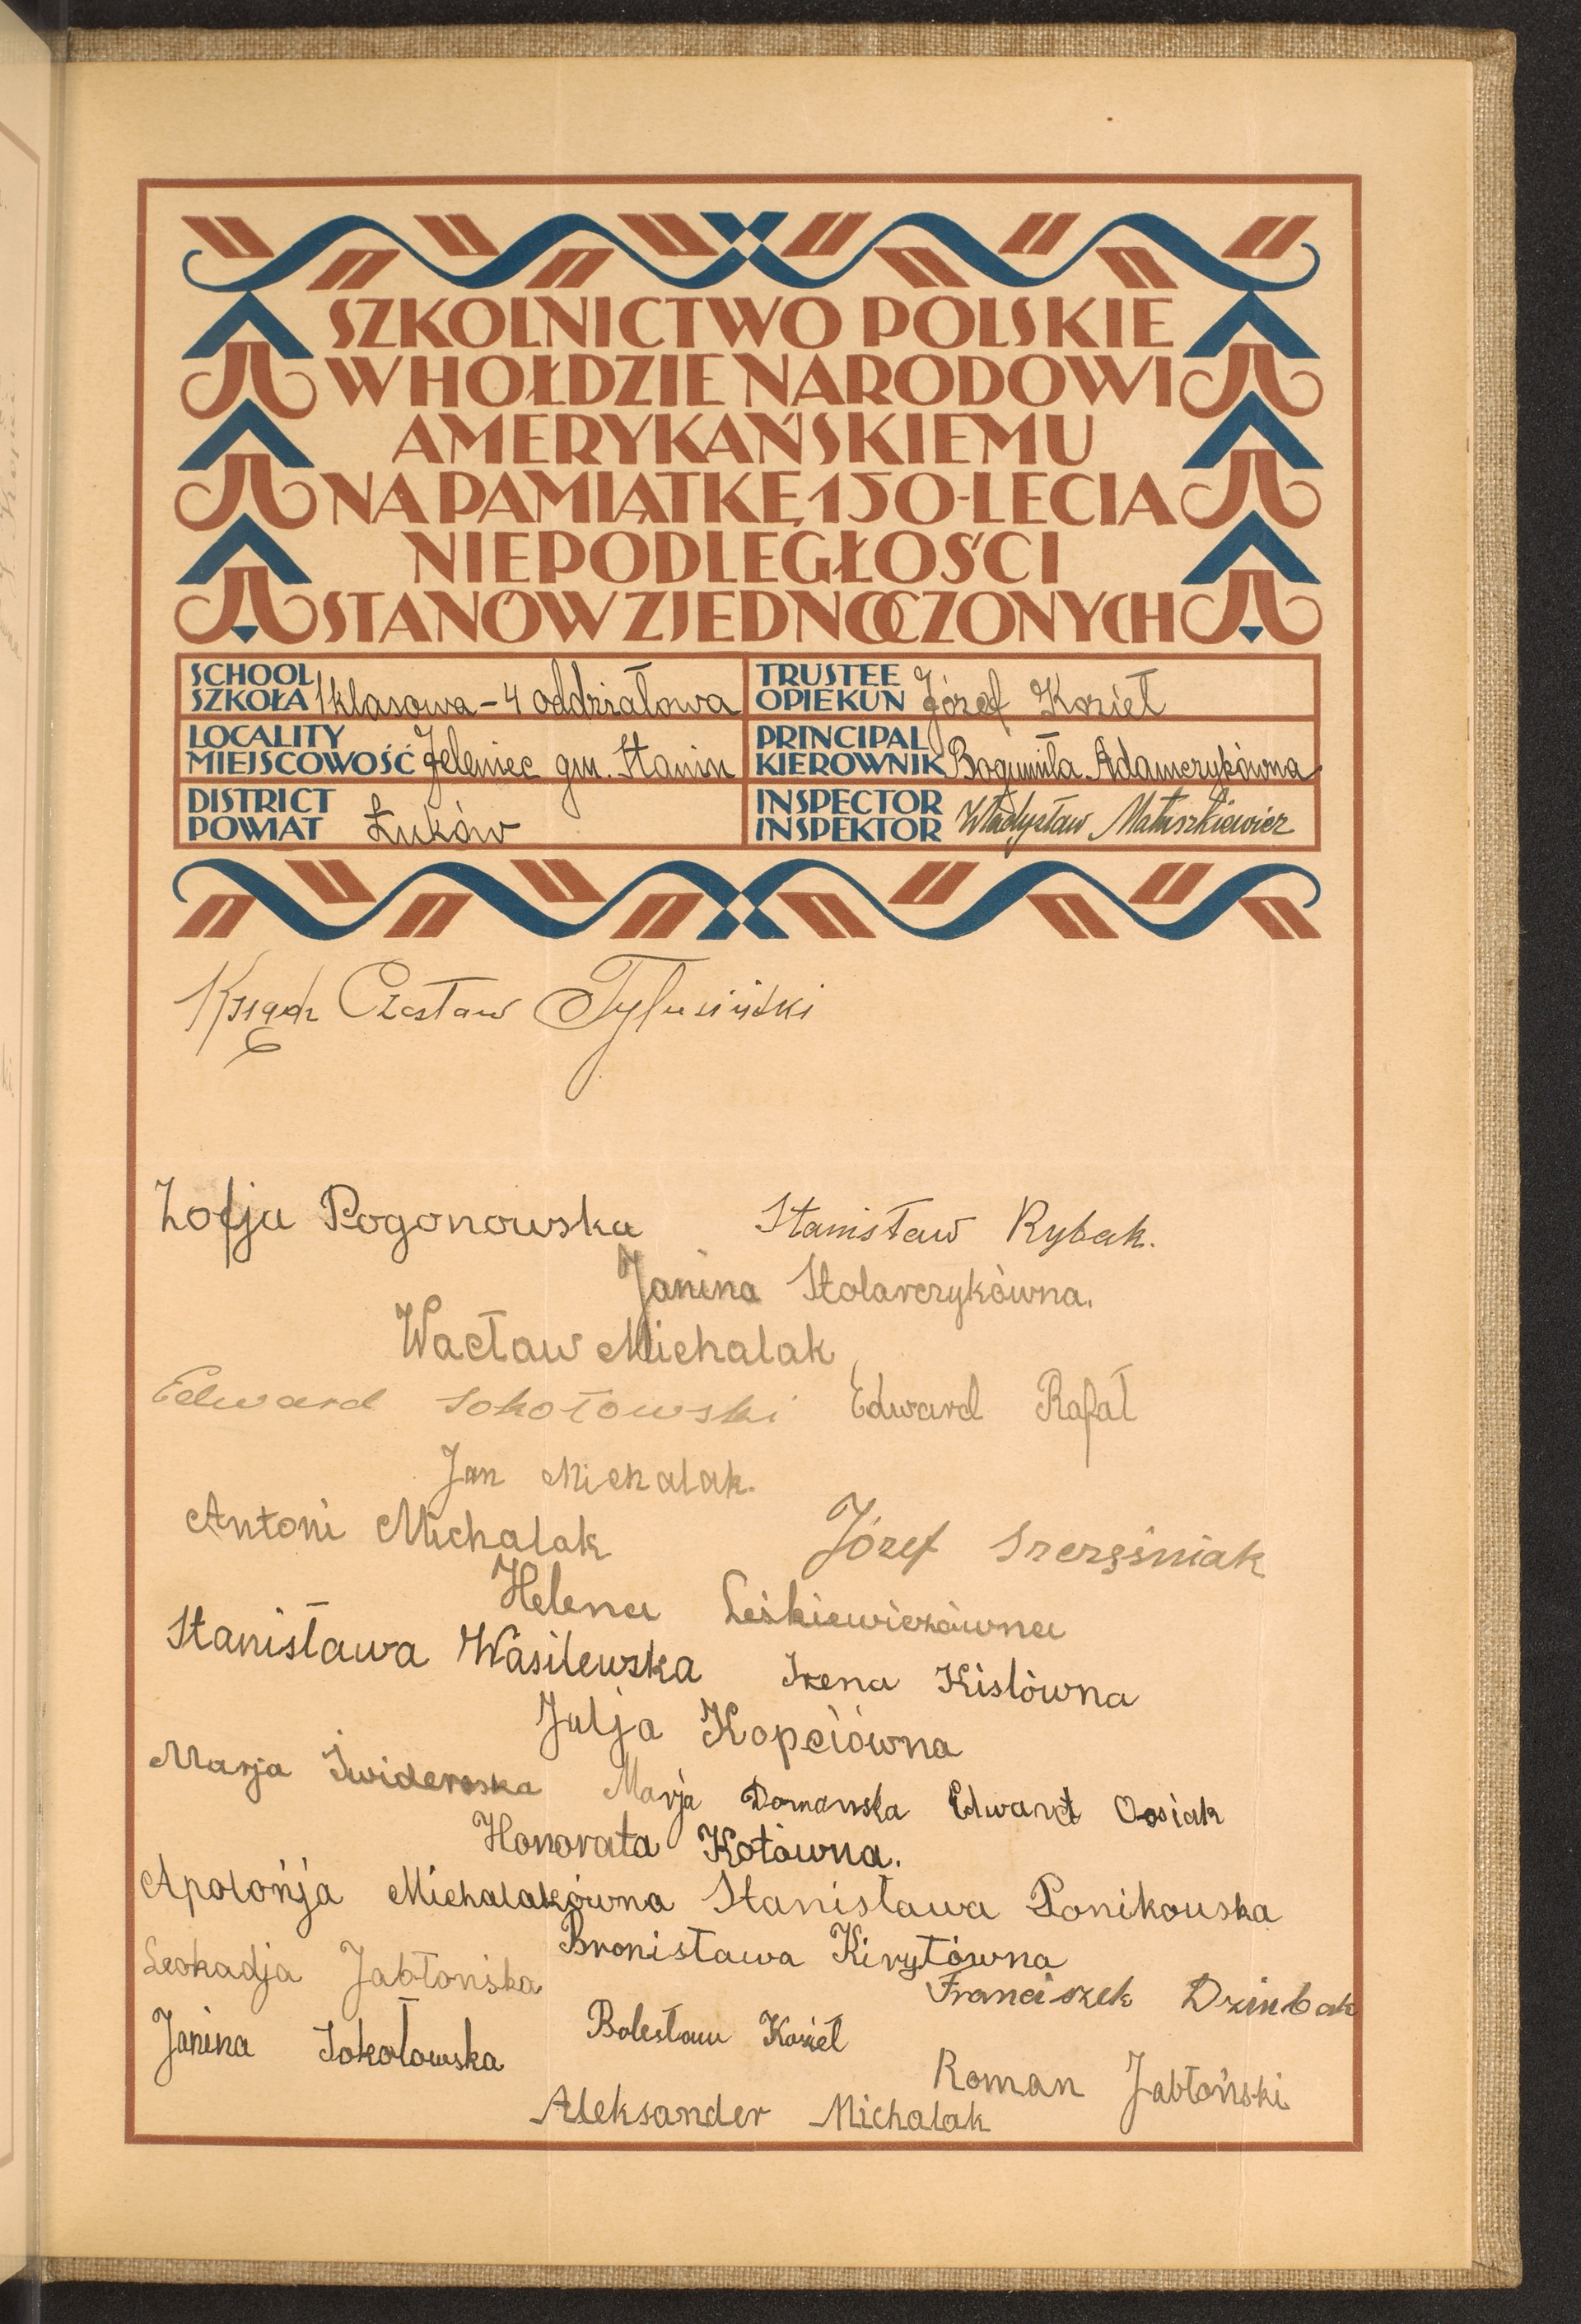 SZKOLNICTWO POLSKIE
W HOŁDZIE NARODOWI
AMERYKAŃSKIEMU
NA PAMIĄTKĘ 150-LECIA
NIEPODLEGŁOŚCI
STANÓW ZJEDNOCZONYCH
SCHOOL
SZKOŁA 1 klasowa - 4 oddziałowa
TRUSTEE
OPIEKUN Józef Kozieł
LOCALITY
MIEJSCOWOŚĆ Jeleniec gm. Stanin
PRINCIPAL
KIEROWNIK Bogumiła Adamczykówna
DISTRICT
POWIAT Łuków
INSPECTOR
INSPEKTOR Władysław Matuszkiewicz
Ksiądz Czesław
Zofja Pogonowska Stanisław Rybak.
Janina Stolarczykówna.
Wacław Michalak
Edward Sokołowski Edward Rafał
Jan Michalak.
Antoni Michalak Józef Szczęśniak
Helena Leśkiewiczówna
Stanisława Wasilewska Irena Kislówna
Julja Kopciówna
Marja Świderska Marja Domańska Edward Osiak
Honorata Kotówna.
Apolońja Michalakówna Stanisława Ponikowska
Bronisława Kiryłówna
Leokadja Jabłońska Franciszek Dziubak
Janina Sokołowska Bolesław Kozieł
Roman Jabłoński
Aleksander Michalak